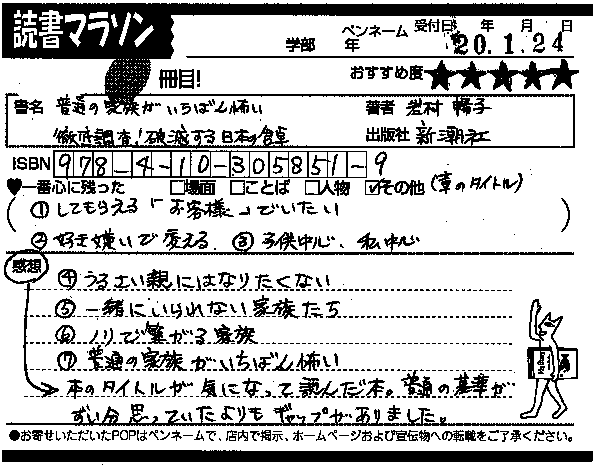 読書マラソン
学部 年 ペンネーム 受付日 年 月 日
20.1.24
冊目!
おすすめ度 ★★★★★
書名 普通の家族がいちばん怖い 著者 岩村暢子
徹底調査!破滅する日本の食卓 出版社 新潮社
ISBN 978-4-10-305851-9
♥一番心に残った □場面 □ことば □人物 ☑その他(章のタイトル)
(①してもらえる「お客様」でいたい)
②好き嫌いで変える ③子供中心、私中心
感想
④うるさい親にはなりたくない
⑤一緒にいられない家族たち
⑥ノリで繋がる家族
⑦普通の家族がいちばん怖い
本のタイトルが気になって読んだ本。普通の基準が
ずい分思っていたよりもギャップがありました。
●お寄せいただいたPOPはペンネームで、店内で掲示、ホームページおよび宣伝物への転載をご了承ください。